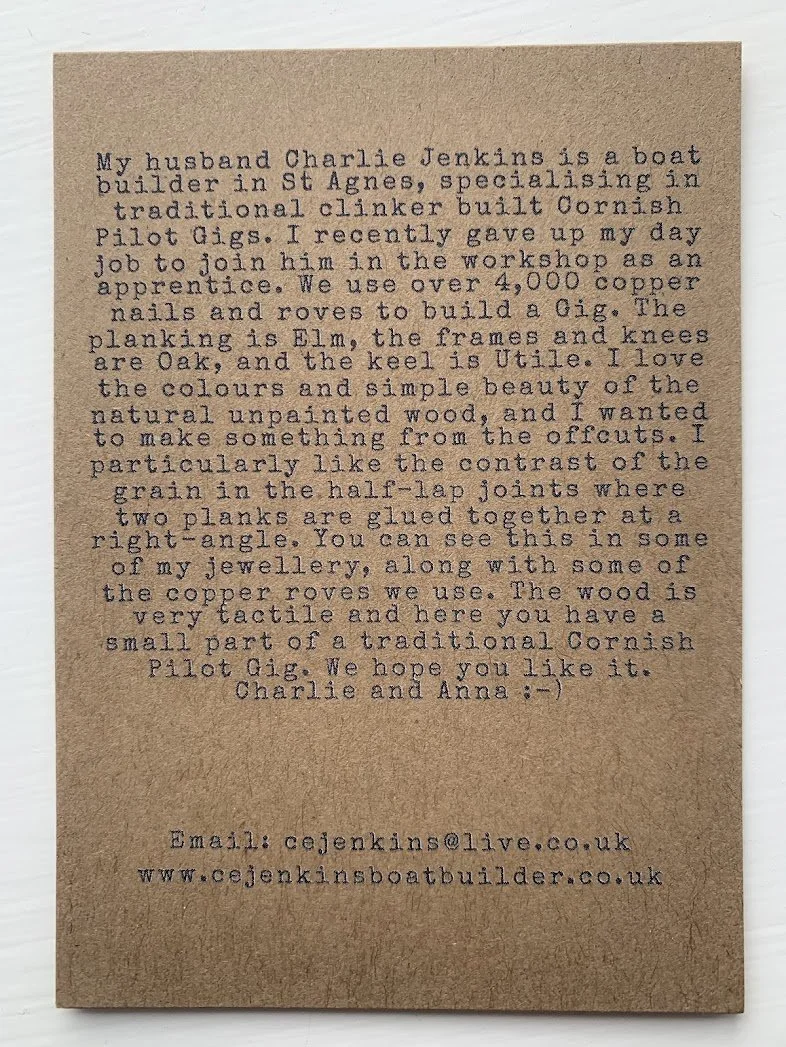 My husband Charlie Jenkins is a boat
builder in St Agnes, specialising in
traditional clinker built Cornish
Pilot Gigs. I recently gave up my day
job to join him in the workshop as an
apprentice. We use over 4,000 copper
nails and roves to build a Gig. The
planking is Elm, the frames and knees
are Oak, and the keel is Utile. I love
the colours and simple beauty of the
natural unpainted wood, and I wanted
to make something from the offcuts. I
particularly like the contrast of the
grain in the half-lap joints where
two planks are glued together at a
right-angle. You can see this in some
of my jewellery, along with some of
the copper roves we use. The wood is
very tactile and here you have a
small part of a traditional Cornish
Pilot Gig. We hope you like it.
Charlie and Anna :-)
Email: cejenkins@live.co.uk
www.cejenkinsboatbuilder.co.uk